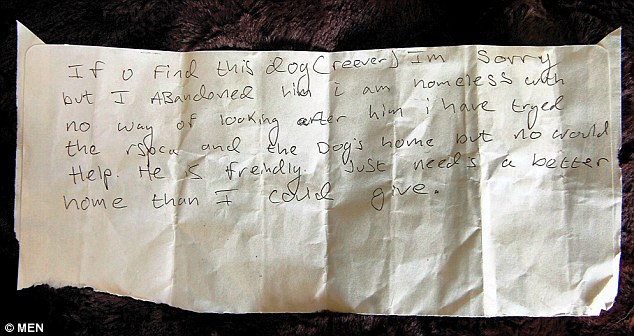 If u find this dog (reever) Im sorry
but I ABandoned him i am homeless with
no way of looking after him i have tryed
the rspca and the Dog's home but no would
Help. He is freindly. Just needs a better
home than I could give.
© MEN